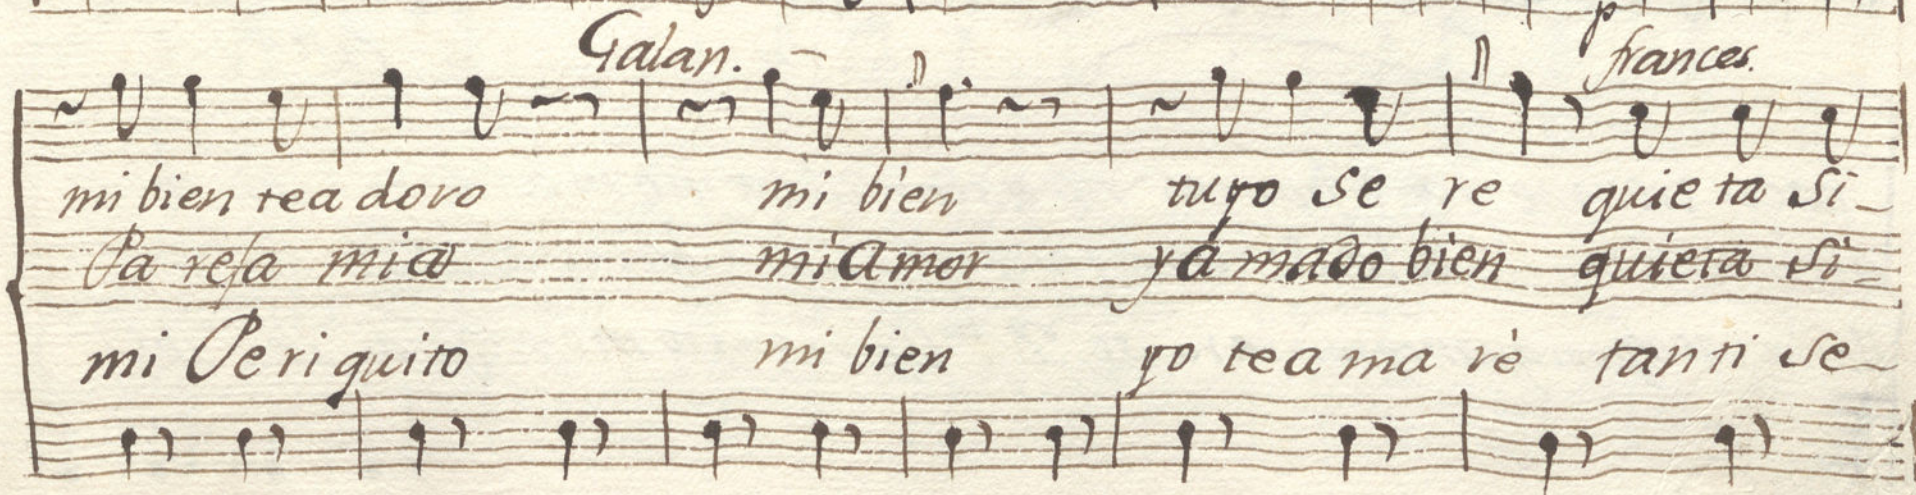 p
Galan. frances.
mi bien tea doro mi bien tuyo se re quie ta si-
Pa resa mia mi Amor yA mado bien quieta si-
mi Periquito mi bien yo tea ma rè tanti se